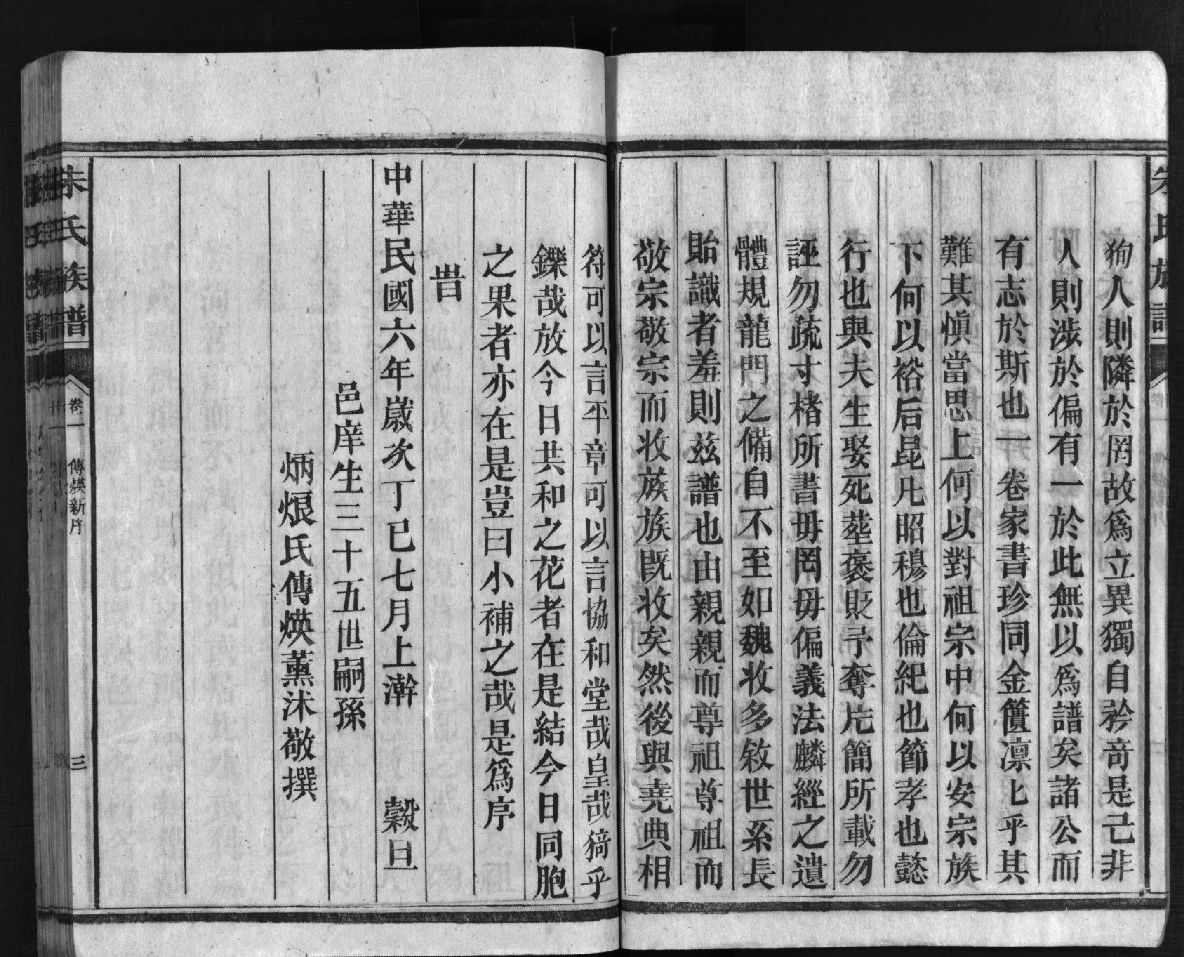 狥人則隣於罔故爲立異獨自矜竒是己非
人則涉於偏有一於此無以爲譜矣諸公而
有志於斯也一卷家書珍同金匱凛匕乎其
難其愼當思上何以對祖宗中何以安宗族
下何以裕后昆凢昭穆也倫紀也節孝也懿
行也與夫生娶死塟褒貶予奪凡簡所載勿
誣勿疏寸楮所書毋罔毋偏義法麟經之遺
體規龍門之備自不至如魏收多敘世系長
貽譏者羞則兹譜也由親親而尊祖尊祖而
敬宗敬宗而收族族既收矣然後與堯典相
符可以言平章可以言協和堂哉皇哉猗乎
鑠哉放今日共和之花者在是結今日同胞
之果者亦在是豈曰小補之哉是爲序
旹
中華民國六年歲次丁巳七月上澣 穀旦
邑庠生三十五世嗣孫
炳烺氏傳煐薰沐敬撰
朱氏族譜 卷一 傳煐新序 三